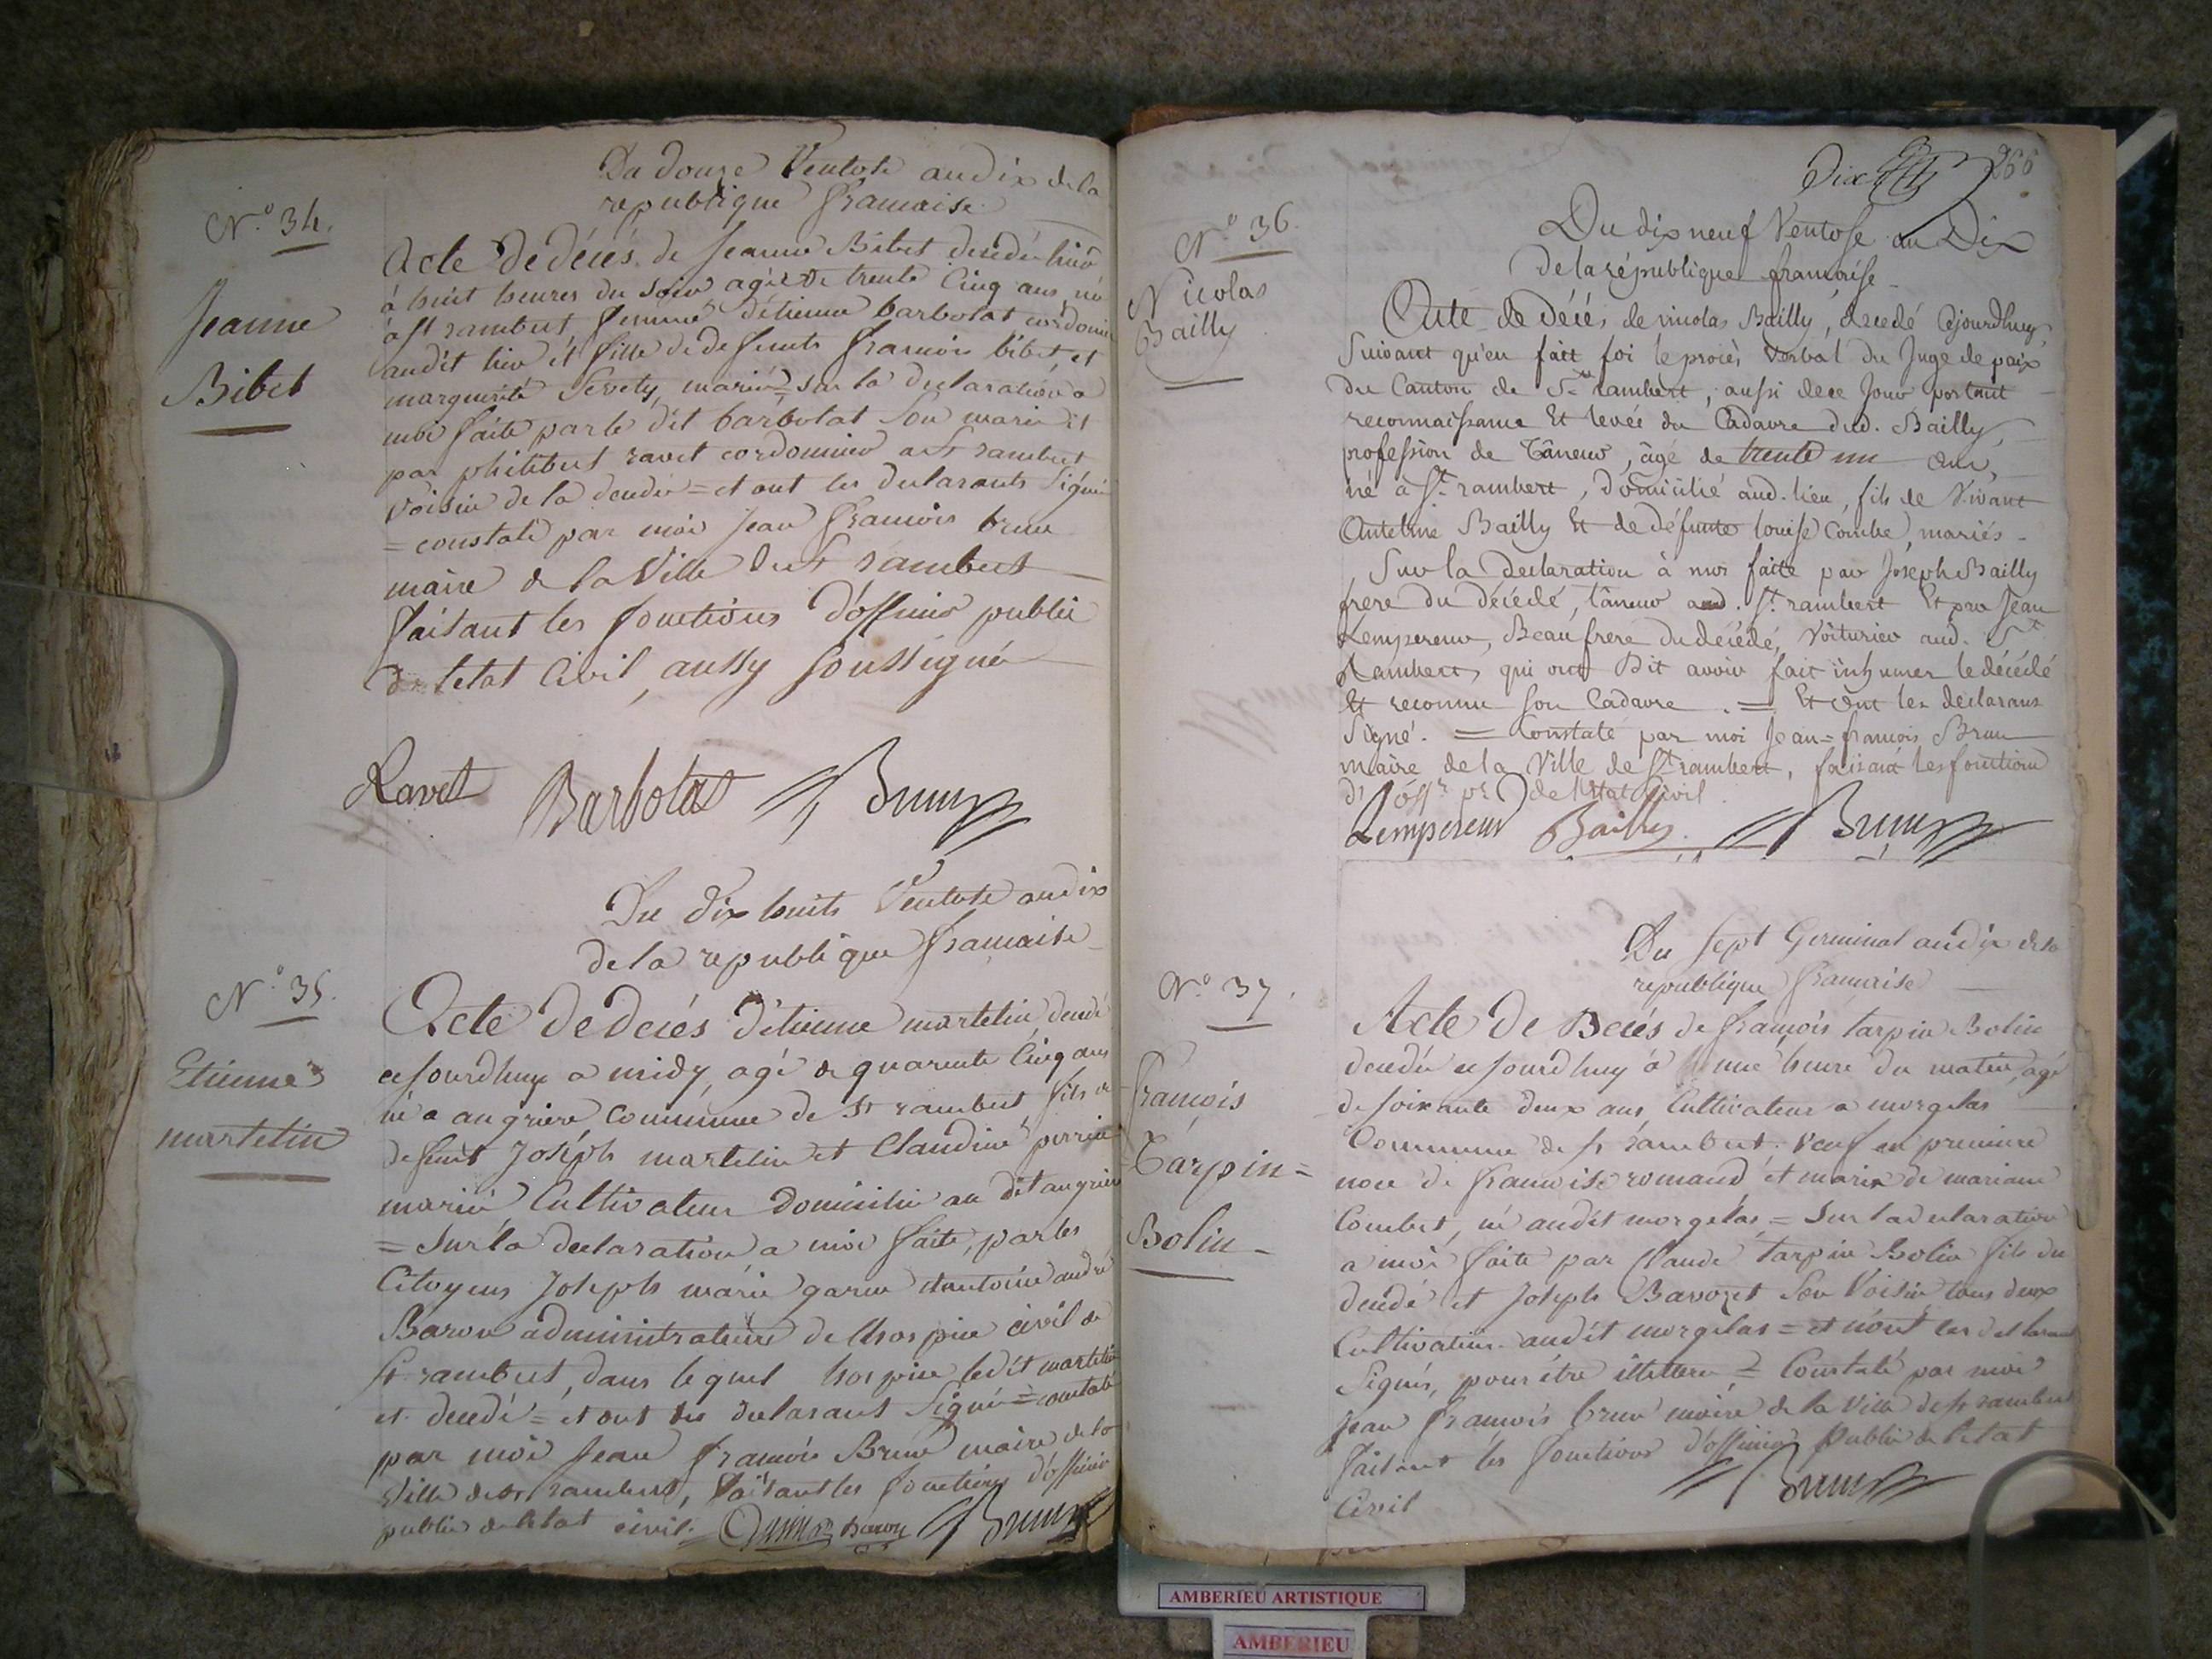 Du douze Ventose an dix de la
republique francaise
N.o 34.
Jeanne
Bibet
Acte de décés de Jeanne Bibet decedée hier
à huit heures du soir agée de trente Cinq ans née
à st rambert, femme d'étienne barbolat cordonnier
audit lieu et fille de defunts francois bibet et
marguerite mariés = sur la declaration a
moi faite par le dit barbolat son mari et
par philibert ravet cordonnier a st rambert
Voisin de la decedée = et ont les declarants Signé
= constaté par moi Jean francois brun
maire de la Ville de st rambert
faisant les fonctions d'officier public
de letat Civil, aussy soussigné
Ravet Barbolat Brun
Du dix huit Ventose an dix
de la republique francaise
N.o 35.
Etienne
martelin
Acte de decés d'étienne martelin decedé
cejourdhuy a midy, agé de quarente Cinq ans
né a angriere commune de st rambert, fils de
defunt Joseph martelin et Claudine perrin
mariés Cultivateur domicilié au dit angriere
= Sur la declaration a moi faite, par les
Citoyens Joseph marie garin et antoine andré
Baron administrateurs de lhospice civil de
st rambert, dans lequel hospice ledit martelin
est decedé = et ont les declarants Signé = constaté
par moi Jean francois Brun maire de la
Ville de st rambert, faisant les fonctions d'officier
public de letat civil. Baron Brun
Dix 266
Du dix neuf Ventose an Dix
de la république française
N.o 36.
Nicolas
Bailly
Acte de décés de nicolas Bailly, decedé cejourdhuy,
Suivant qu'en fait foi le procès Verbal du Juge de paix
du Canton de St rambert, aussi de ce Jour portant
reconnaissance Et levée du Cadavre dud. Bailly,
profession de Tâneur, âgé de trente un ans,
né à St rambert, domicilié aud. lieu, fils de Vivant
Antelme Bailly Et de défunte louise Combe, mariés.
Sur la declaration à moi faite par Joseph Bailly
frere du décédé, tâneur aud. St rambert Et par Jean
Lempereur, Beaufrere du décédé, Voiturier aud. St
Rambert, qui ont Dit avoir fait inhumer le décédé
Et reconnu son Cadavre. = Et ont les déclarans
Signé. = Constaté par moi Jean=francois Brun
maire de la Ville de St rambert, faisant les fonctions
d' offr pc de l'Etat Civil.
Lempereur Bailly Brun
Du sept Germinal an dix de la
republique francaise
N.o 37.
francois
Tarpin=
Bolin
Acte de Decés de françois tarpin Bolin
decedé cejourdhuy à une heure du matin, agé
de soixante deux ans, Cultivateur a morgelas
Commune de st rambert, veuf en premiere
noce de francoise romand et marié de mariane
Combet, né audit morgelas = Sur la declaration
a moi faite par Claude tarpin Bolin fils du
decedé et Joseph Bavozet son Voisin tous deux
Cultivateurs audit morgelas = et n'ont les declarants
Signés, pour être illettrés = Constaté par moi
Jean francois brun maire de la Ville de st rambert
faisant les fonctions d'officier Public de letat
Civil Brun
AMBERIEU ARTISTIQUE
AMBERIEU